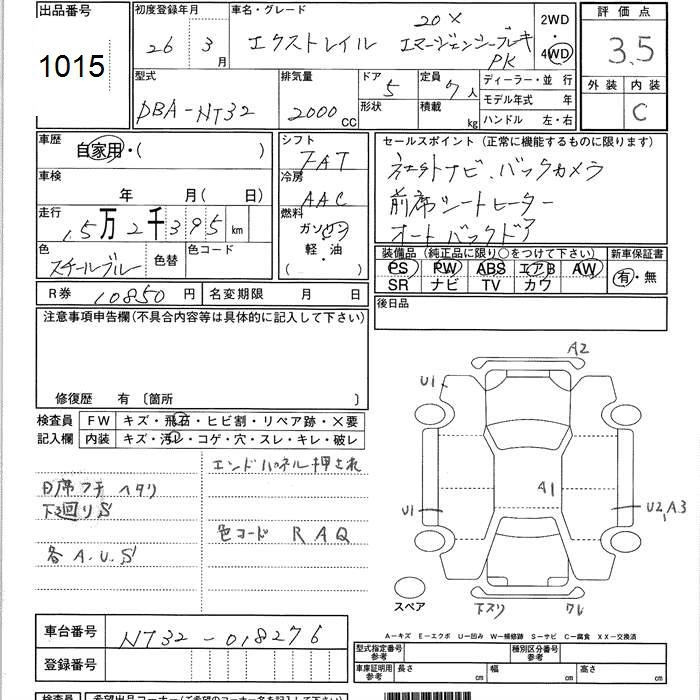 出品番号 初度登録年月 車名・グレード 評価点
1015
26年 3月 エクストレイル 20X エマージェンシーブレーキPK 2WD・4WD 3.5
型式 排気量 ドア 5 定員 7人 ディーラー・並行 外装 内装
DBA-NT32 2000cc 形状 積載 kg モデル年式 年 C
ハンドル 左・右
車歴 自家用・( ) シフト FAT セールスポイント (正常に機能するものに限ります)
車検 年 月( 日) 冷房 AAC 社外ナビ、バックカメラ
前席シートヒーター
走行 15万2千395km 燃料 ガソリン オートバックドア
色 スチールブル 色替 色コード 軽・油 ( )
装備品 (純正品に限り○をつけて下さい) 新車保証書
PS PW ABS エアB AW 有・無
SR ナビ TV カワ
R券 10850円 名変期限 月 日 後日品
注意事項申告欄(不具合内容等は具体的に記入して下さい)
修復歴 有 〔箇所 〕
検査員 FW キズ・飛石・ヒビ割・リペア跡・×要
記入欄 内装 キズ・汚レ・コゲ・穴・スレ・キレ・破レ
エンドパネル押され
日席フチ ヘタリ
下廻りS
色コード RAQ
各A.U.S
A2
U1
A1
U1 U2,A3
スペア 下ズリ ワレ
A-キズ E-エクボ U-凹み W-補修跡 S-サビ C-腐食 XX-交換済
車台番号 NT32-018276 型式指定番号 参考 種別区分番号 参考
登録番号 車庫証明用 参考 長さ cm 幅 cm 高さ cm
検査員 希望出品コーナー(ご希望のコーナー名を記入